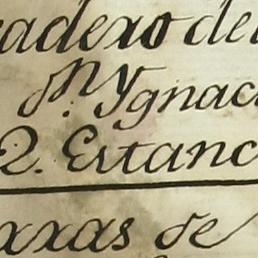 adero del
Dⁿ. Ygnac
2. Estanc
rras de